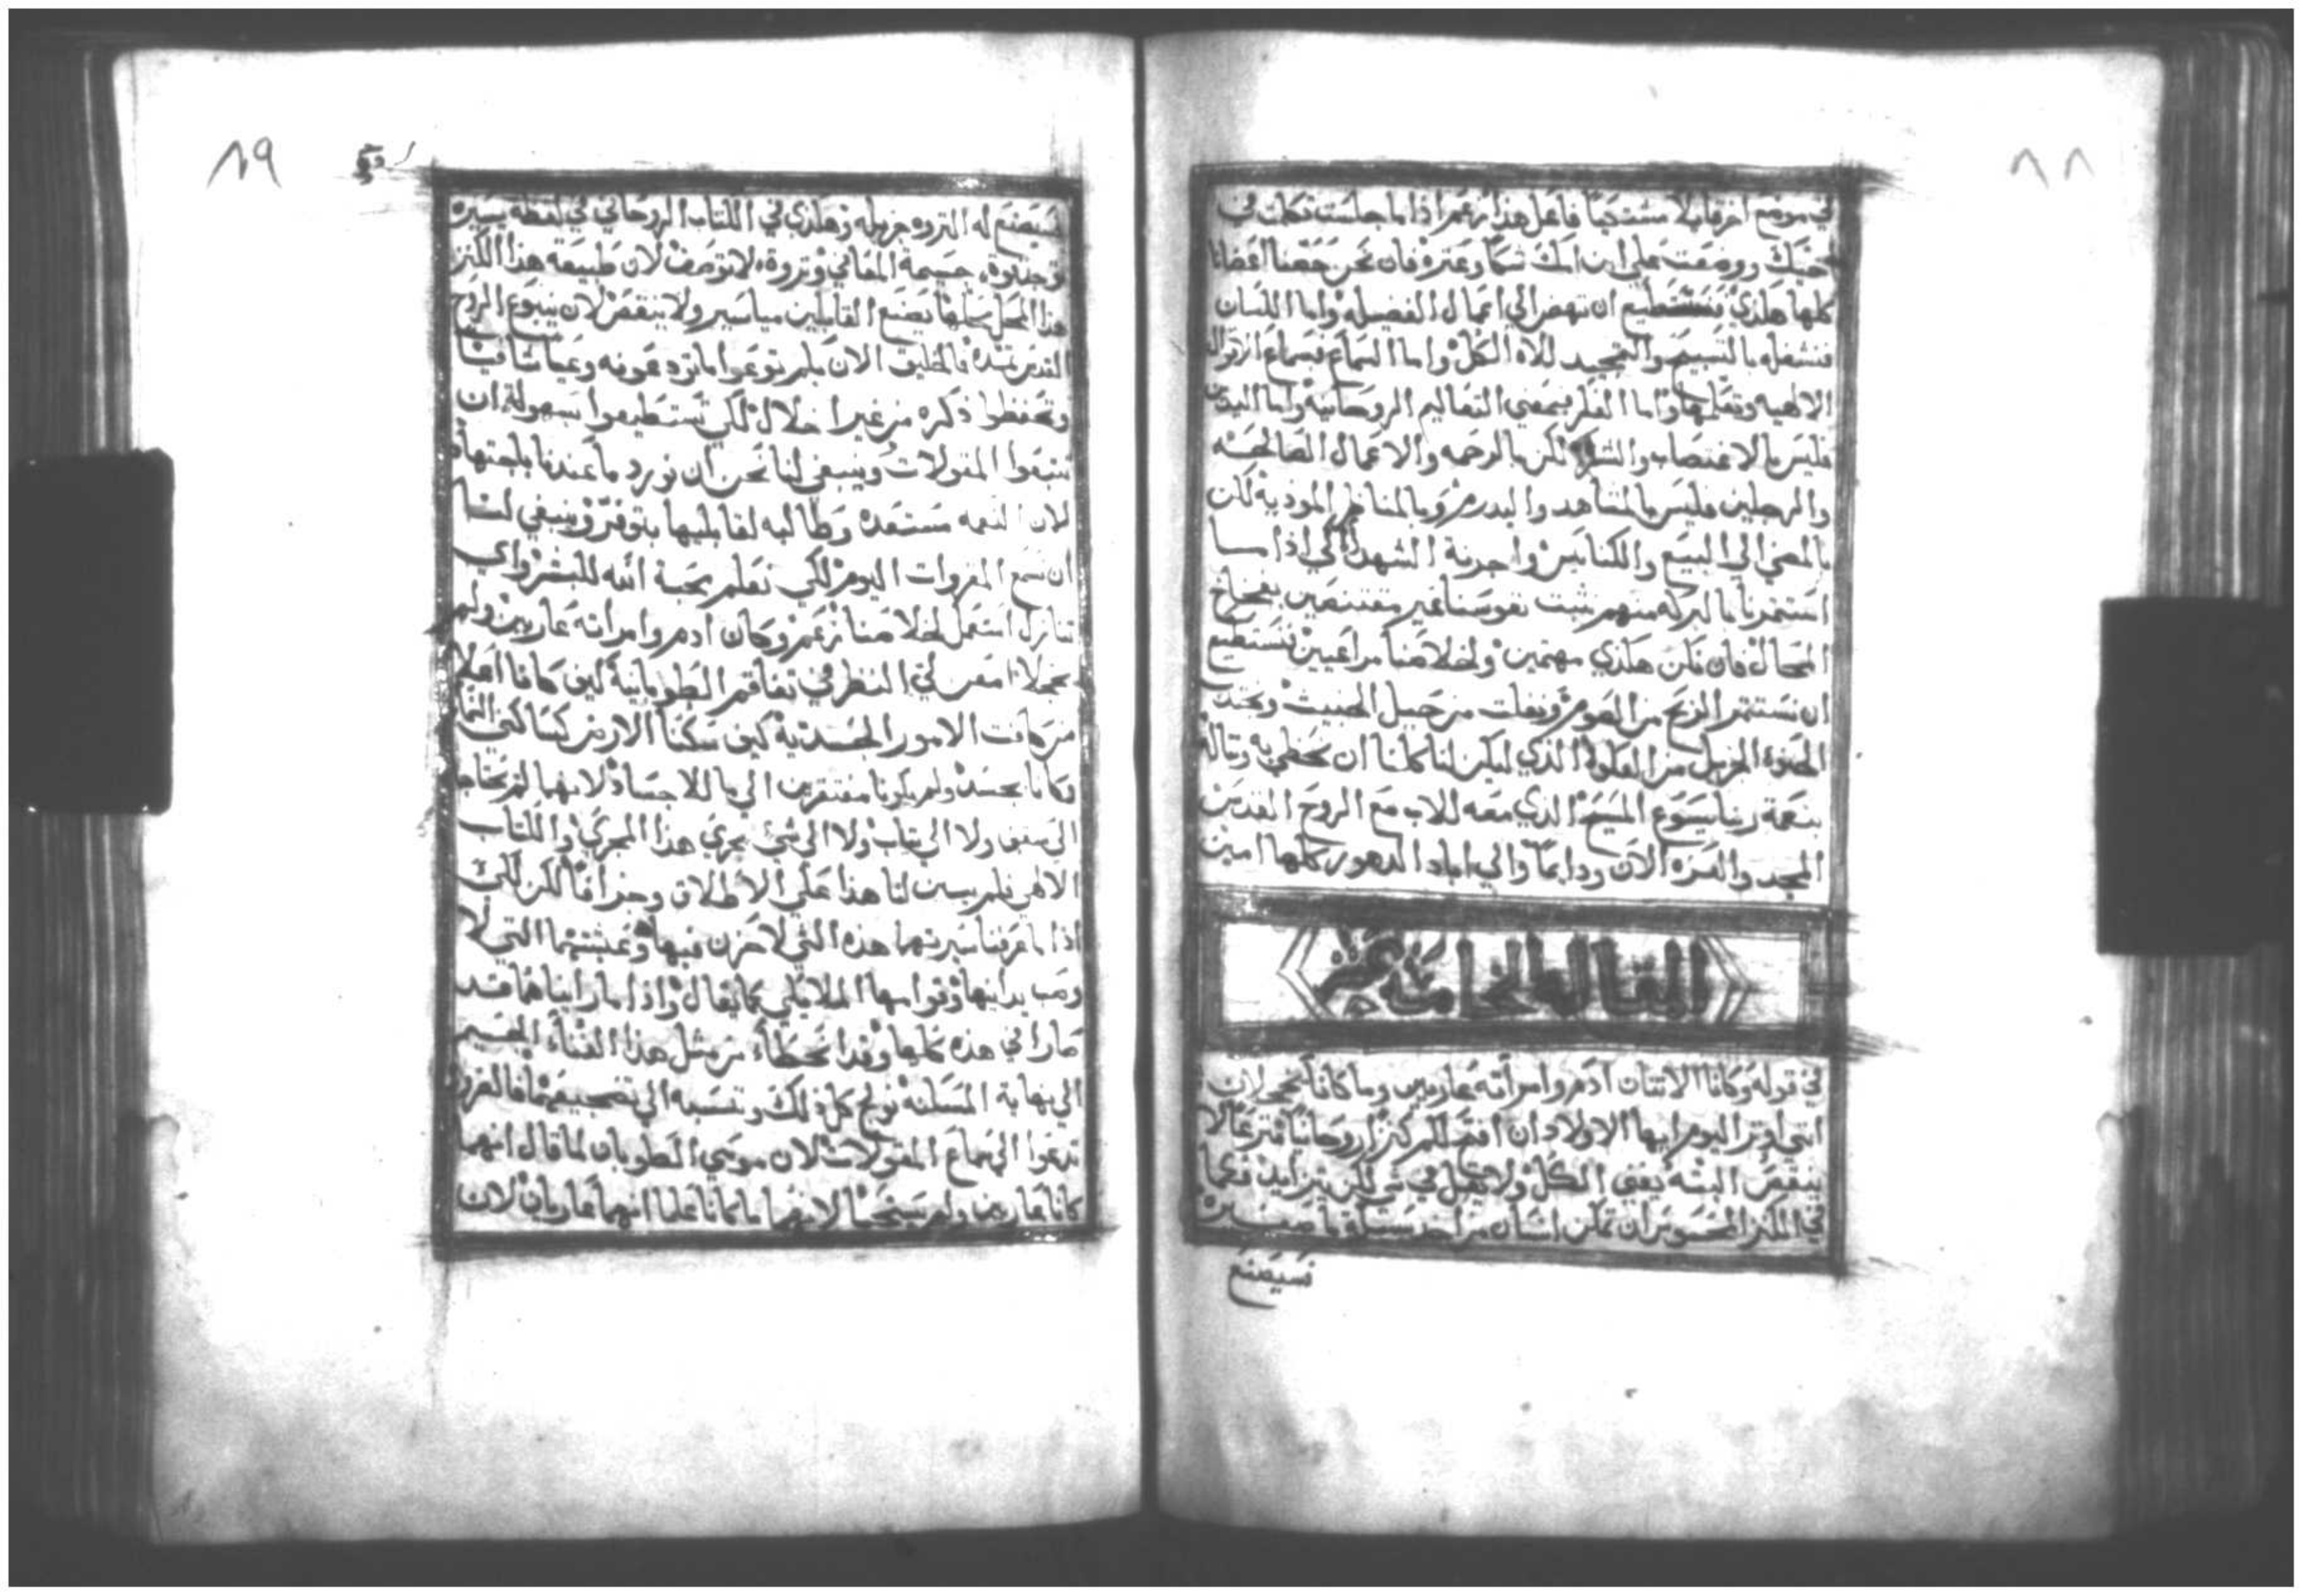 ٨٨
في موضع اخر قايلا فاعل هذا نعم اذا ما جلست تكلمت في
اخيك ووضعت على ابن امك شكا وعثرة فان نحن حفضنا اعضانا
كلها هكذي فنستطيع ان ننهض الي اعمال الفضيله واما اللسان
فنشغله بالتسبيح والتمجيد للاه الكل واما السماع فبسماع الاقوال
الالاهيه وتعلمها واما الفكر فبمعني التعاليم الروحانية واما اليدين
فليس بالاغتصاب والشره لكن بالرحمه والاعمال الصالحه
والرجلين فليس بالمشاهد والبدر وبالمناظر الموذية لكن
بالمضي الي البيع والكنايس واجرنة الشهدا لكي اذا ما
استثمرنا بالبركه منهم نثبت نفوسنا غير مقتنصين بفخاخ
المحال فان نكن هكذي مهتمين ولخلاصنا مراعيين نستطيع
ان نستثمر الربح من الصوم ونفلت من حبل الخبيث ونجد
الحنوه الجزيل من العلو الذي ليكن لنا كلنا ان نحظي به ونناله
بنعمة ربنا يسوع المسيح الذي معه للاب مع الروح القدس
المجد والعزه الان ودايما والي اباد الدهور كلها امين
المقاله الخامسه عشر
في قوله وكانا الاثنان ادم وامراته عاريين وما كانا يخجلان
انني اوثر اليوم ايها الاولاد ان افتح لكم كنزا روحانيا متوزعا لا
ينقص البته يغني الكل ولا يقل في شي لكن يتزايد فكما
في الكنز المحسوس ان تمكن انسان من اخذ شيا ما صغير
فسيصنع
٨٩
فسيصنع له الثروه جزيله وهكذي في الكتاب الروحاني في لفظة يسيره
توجد قوة جسيمة المعاني وثروة لا توصف لان طبيعة هذا الكنز
هذا المحل شكلها يصنع القابلين مياسير ولا ينقص لان ينبوع الروح
القدس تمده فالخليق الان بكم توعوا ما تودعونه وعيا شافيا
وتحفظوا ذكره من غير اخلال لكي تستطيعوا بسهولة ان
تتبعوا المقولات وينبغي لنا نحن ان نورد ما عندنا باجتهاد
لان النعمه مستعده وطالبه لقابليها بتوفر وينبغي لنا
ان نسمع المقروات اليوم لكي نعلم محبة الله للبشر واي
تنازل استعمل لخلاصنا نعم وكان ادم وامراته عاريين ولم
يخجلا امعن لي النظر في تفاقم الطوبانية كيف كانا اعلا
من كافت الامور الجسدية كيف سكنا الارض كساكني السما
وكانا بجسد ولم يكونا مفتقرين الي ما للاجساد لانهما لم يحتاجا
الي سقف ولا الي ثياب ولا الي شي يجري هذا المجري والكتاب
الالاهي فلم يبين لنا هذا علي الاطلاق وجزافا لكن لكي
اذا ما عرفنا سيرتهما هذه التي لا حزن فيها وعيشتهما التي لا
وصب يدانيها وقوامها الملايكي كما يقال واذا ما رايناهما قد
صارا في هذه كلها وقد انحطا من مثل هذا الغناء الجسيم
الي نهاية المسكنه نولج كل ذلك وننسبه الي تضجيعهما فالضرور
تدعوا الي سماع المقولات لان موسي الطوبان لما قال انهما
كانا عاريين ولم يستحيا لانهما ما كانا علما انهما عاريان لان